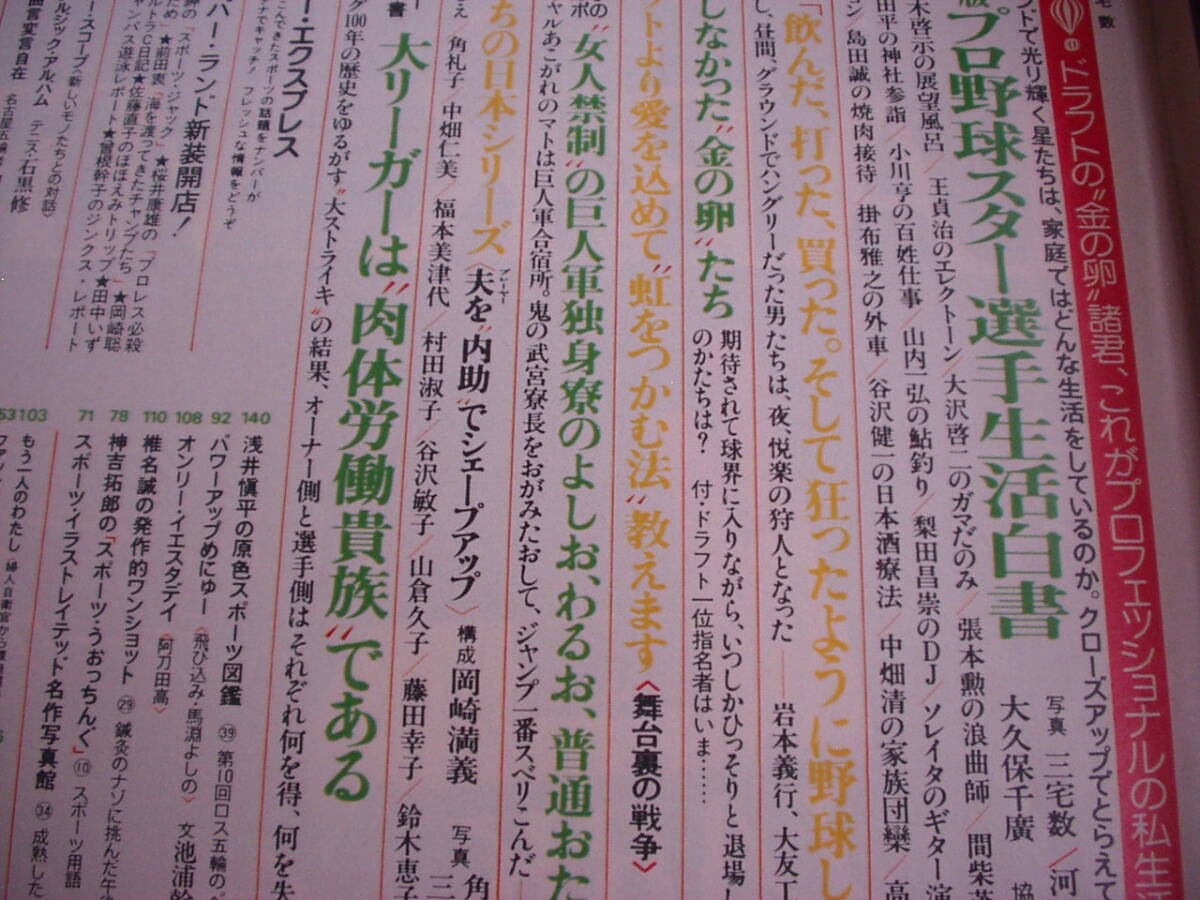 ドラフトの"金の卵"諸君、これがプロフェッショナルの私生活
フトで光り輝く星たちは、家庭ではどんな生活をしているのか。クローズアップでとらえて
版プロ野球スター選手生活白書
写真 三宅数/河
大久保千廣 協
木啓示の展望風呂/王貞治のエレクトーン/大沢啓二のガマだのみ/張本勲の浪曲師/間柴茂
田平の神社参詣/小川亨の百姓仕事/山内一弘の鮎釣り/梨田昌崇のDJ/ソレイタのギター演
ン/島田誠の焼肉接待/掛布雅之の外車/谷沢健一の日本酒療法/中畑清の家族団欒/高
「飲んだ、打った、買った。そして狂ったように野球し
し、昼間、グラウンドでハングリーだった男たちは、夜、悦楽の狩人となった——岩本義行、大友工
しなかった"金の卵"たち
期待されて球界に入りながら、いつしかひっそりと退場し
のかたちは? 付・ドラフト一位指名者はいま……
ットより愛を込めて"虹をつかむ法"教えます〈舞台裏の戦争〉
の"女人禁制"の巨人軍独身寮のよしお、わるお、普通おた
ャルあこがれのマトは巨人軍合宿所。鬼の武宮寮長をおがみたおして、ジャンプ一番スベリこんだ
ちの日本シリーズ〈夫を"内助"でシェープアップ〉
プレーヤー
構成 岡崎満義 写真 角
角礼子/中畑仁美/福本美津代/村田淑子/谷沢敏子/山倉久子/藤田幸子/鈴木恵子
大リーガーは"肉体労働貴族"である
グ100年の歴史をゆるがす"大ストライキ"の結果、オーナー側と選手側はそれぞれ何を得、何を失
ー・エクスプレス
こんできたスポーツの話題をナンバーが
チでキャッチ! フレッシュな情報をどうぞ
バー・ランド新装開店!
「スポーツ・ジャック」★桜井康雄の「プロレス必殺
★前田衷「海を渡ってきたチャンプたち」★岡崎聡
ルトラ70日記★佐藤直子のほほえみトリップ★田中いず
ャンパス遊泳レポート★曽根幹子のジンクス・レポート
ース・スコープ〈新しいモノたちとの対話〉
ルシック・アルバム テニス・石黒修
曲言変言自在
140 浅井愼平の原色スポーツ図鑑 ㊴ 第10回ロス五輪の。
92 パワーアップめにゅー〈飛び込み・馬淵よしの〉 文 池浦
108 オンリー・イエスタデイ〈阿刀田高〉
110 椎名誠の発作的ワンショット ㉙ 鍼灸のナゾに挑んだ午
78 神吉拓郎の「スポーツ・うおっちんぐ」⑩ スポーツ用語
71 スポーツ・イラストレイテッド名作写真館 ㉞ 成熟した
103 もう一人のわたし
53